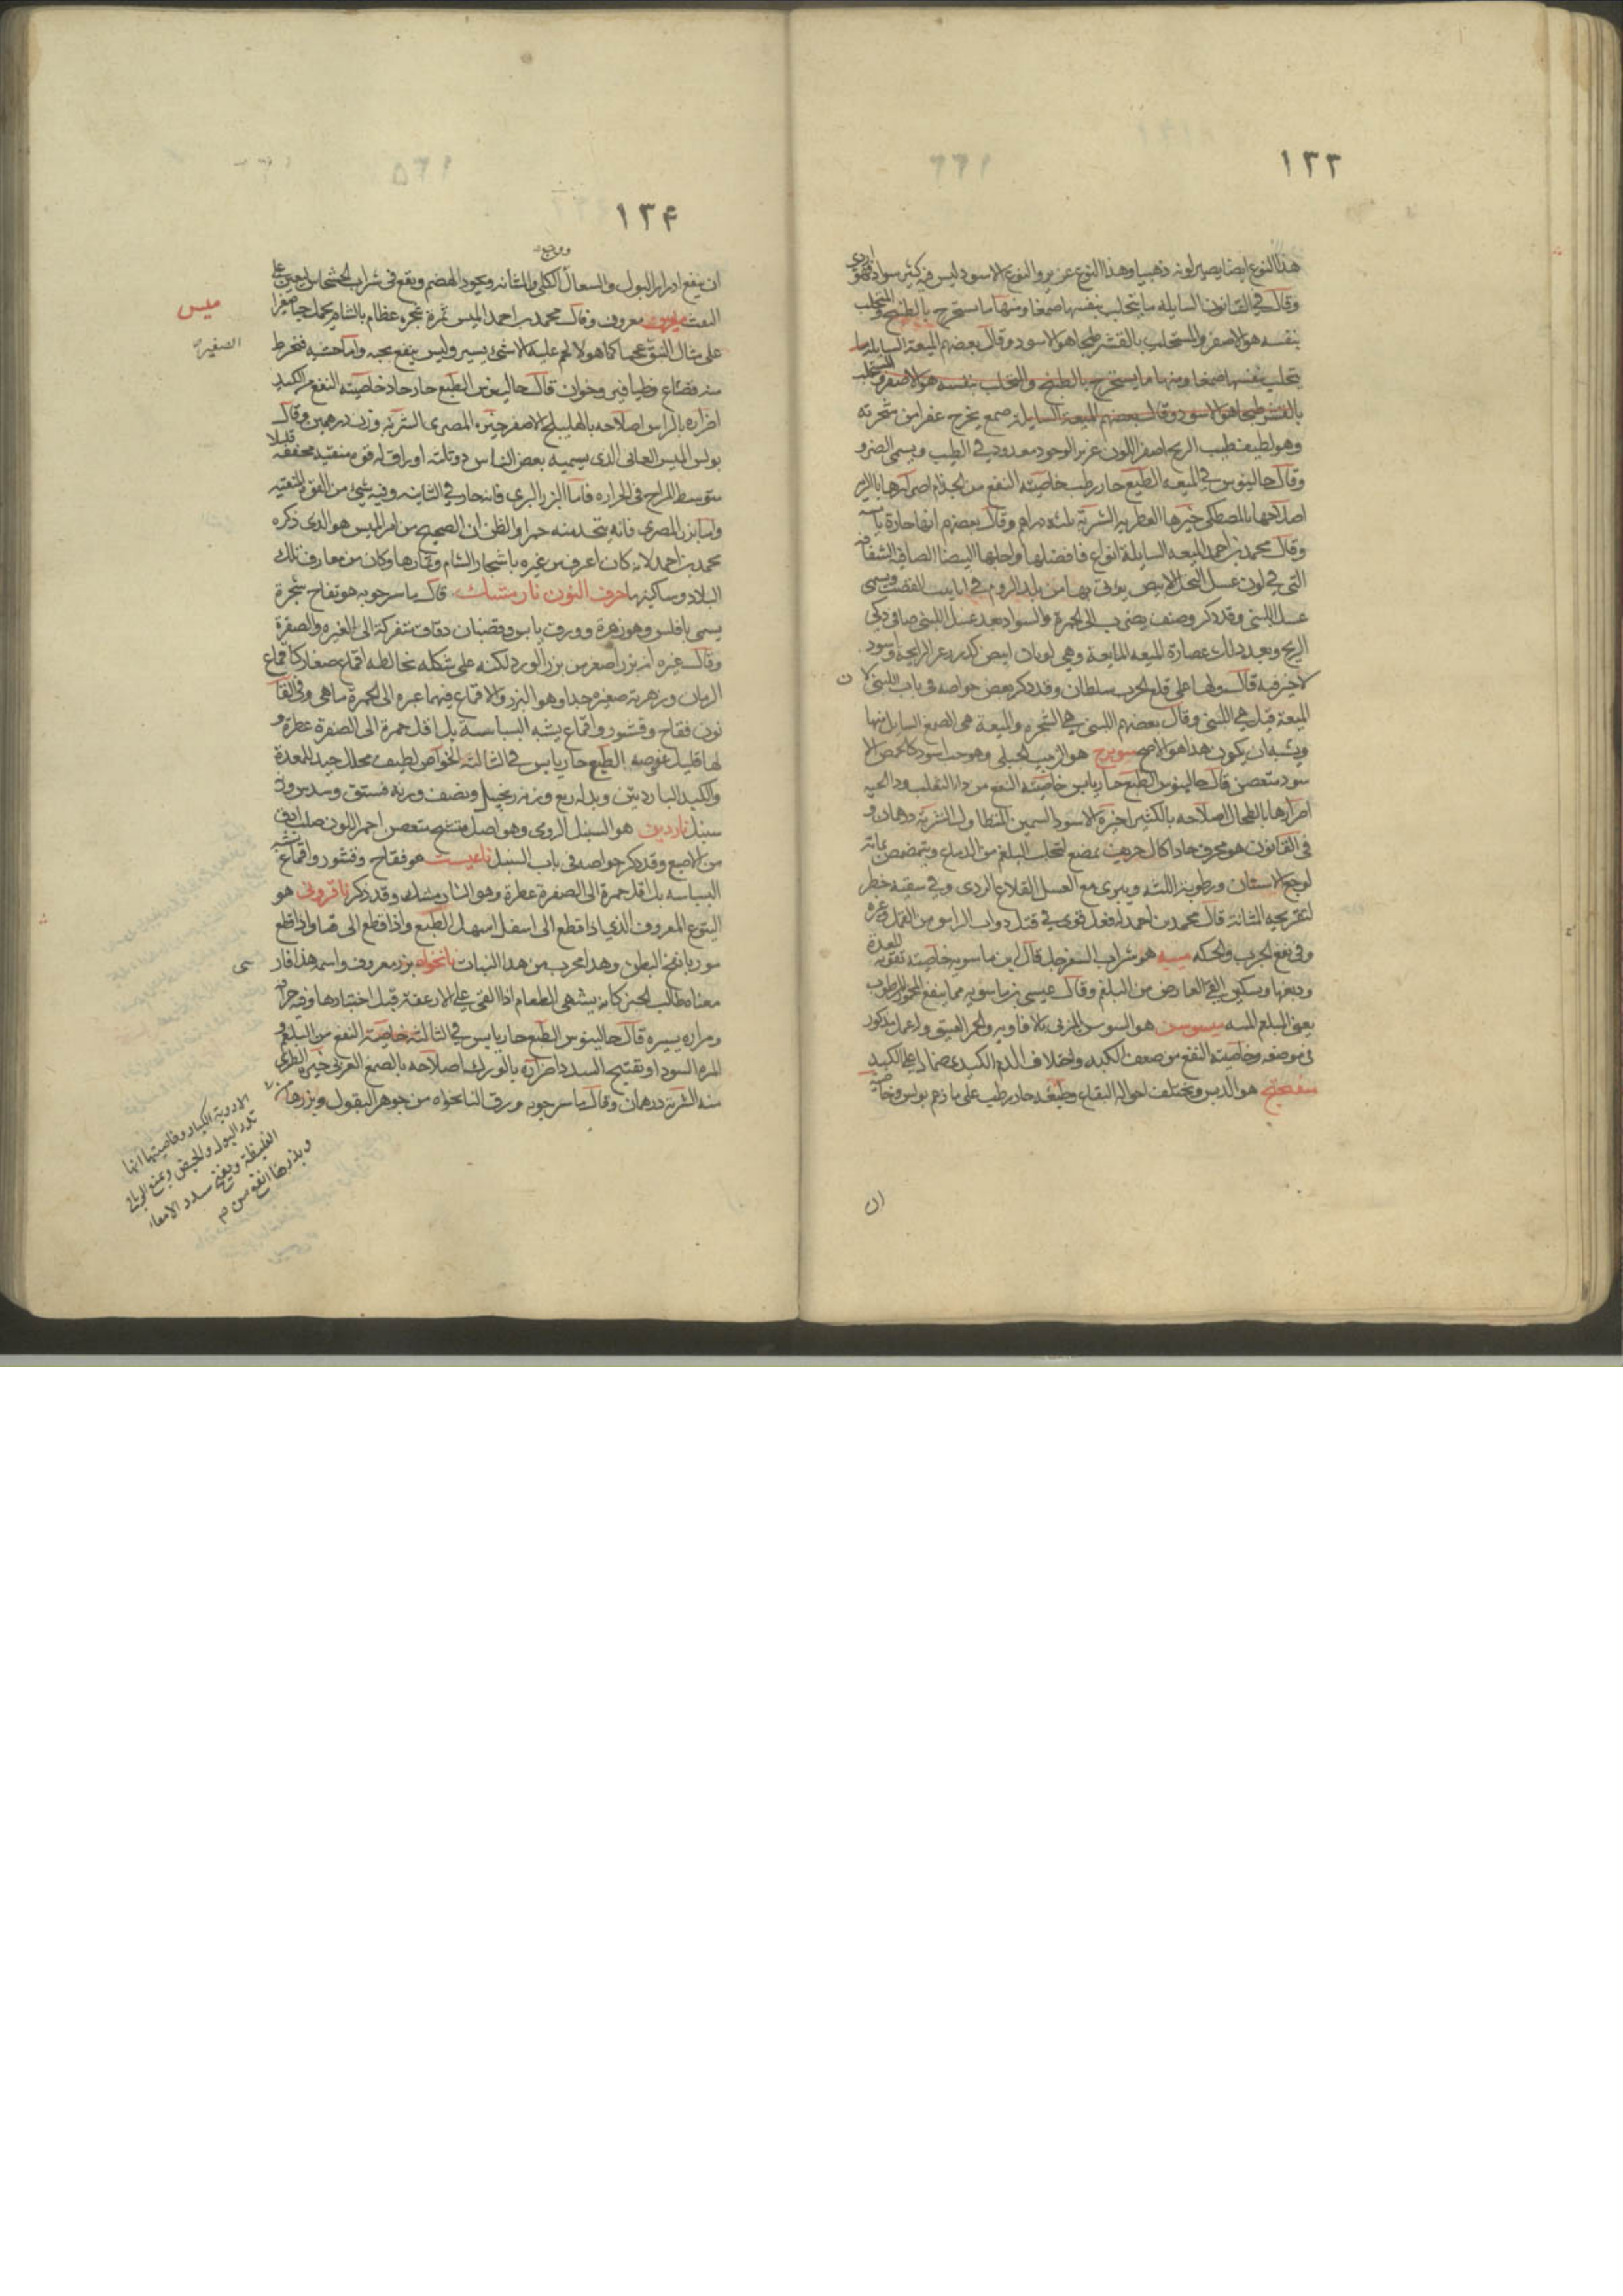 ١٣٣
هذا النوع ايضا يصير لونه ذهبيا وهذا النوع عزيز والنوع الاسود ليس فيه كثير سواد فهو ردى
وقال في القانون السايلة ما يتحلب بنفسها صمغا ومنها ما يستخرج بالطبخ والمتحلب
بنفسه هو الاصفر والمستحلب بالقشر طبخا هو الاسود وقال بعضهم الميعة السايلة ما
يتحلب بنفسها صمغا ومنها ما يستخرج بالطبخ والمتحلب بنفسه هو الاصفر والمستحلب
بالقشر طبخا هو الاسود وقال بعضهم الميعة السايلة صمغ يخرج عفرا من شجرته
وهو لطيف طيب الريح اصفر اللون عزيز الوجود معدود في الطيب ويسمى الضرو
وقال جالينوس في الميعه الطبع حار رطب خاصيته النفع من الجذام اضرارها بالريه
اصلاحها بالمصطكى خيرها العطريه الشربة ثلثه دراهم وقال بعضهم انها حارة يابسة
وقال محمد بن احمد الميعه السايلة انواع فافضلها واجلها البيضا الصافيه الشفافه
التي في لون عسل النحل الابيض يؤتى بها من بلد الروم في انابيب الفضة ويسمى
عسل اللبنى وقد ذكر وصنف يضرب الى الحمرة والسواد بعد عسل اللبنى صافى ذكى
الريح وبعد ذلك عصارة الميعه المايعة وهي لونان ابيض كدر زعر الرايحه واسود
لا خير فيه قال ولها على قلع الجرب سلطان وقد ذكر بعض خواصه فى باب اللبنى لان
الميعة قيل هي اللبنى وقال بعضهم اللبنى هي الشجره والميعة هى الصمغ السايل منها
ويشبه ان يكون هذا هو الاصح ميويزج هو الزبيب الجبلى وهو حب اسود كالحمص الا
سود متغضن قال جالينوس الطبع حار يابس خاصيته النفع من دا الثعلب ودا الحيه
اضرارها بالطحال اصلاحه بالكثيرا خيرة الاسود السمين المتطاول الشربة درهمان و
فى القانون هو محرق حاد اكال حريف يمضغ لتحلب البلغم من الدماغ ويتمضمض بمائه
لوجع الاسنان ورطوبة اللثه ويبرى مع العسل القلاع الردى وفي سقيه خطر
لتقريحه المثانة قال محمد بن احمد له فعل قوى في قتل دواب الراس من القمل وغيره
وفى نفع الجرب والحكه ميبه هو شراب السفرجل قال ابن ماسويه خاصيته تقويه المعدة
ودبغها ويسكن القئ العارض من البلغم وقال عيسى بن ماسويه مما ينفع المحرور المرطوب
يعنى البلغم الميبه ميسوسن هو السوسن المربى بالافاويه والخمر العتيق وعمل مذكور
فى موضعه وخاصيته النفع من ضعف الكبد واختلاف الدم الكبدى ضمادا على الكبد
ميفختج هو الدبس ويختلف احواله البقاع وطبعه حار رطب على ما زعم بولس وخا
ان
١٣٤
ووجع
ان ينفع ادرار البول والسعال الكلى والمثانه ويجود الهضم ويقع فى شراب الخشخاش ليعين على
النفث ميس معروف وقال محمد بن احمد الميس ثمرة شجره عظام بالشام يحمل حبا صغيرا
على مثال النبق عجما كما هو لا لحم عليه الا شئ يسير وليس ينفع بحبه واما خشبه فتخرط
منه قصاع وطيافير وخوان قال جالينوس الطبع حار حاد خاصيته النفع من الكبد
اضراره بالراس اصلاحه بالهليلج الاصفر خيره المصرى الشربة وزن درهمين وقال
بولس الميس العانى الذى يسميه بعض الناس دوتلته اوراق له قوة منقيه مجففه قليلا
متوسط المزاج فى الحراره فاما البزر البرى فانه حار في الثانيه وفيه شئ من القوة المنقيه
واما بزر المصرى فانه يتخذ منه خبزا والظن ان الصحيح من امر الميس هو الذى ذكره
محمد بن احمد لانه كان اعرف من غيره باشجار الشام وثمارها وكان من معارف تلك
البلاد وساكنها حرف النون نارمشك قال ماسرجويه هو تفاح شجرة
يسمى باقلس وهو زهرة وورق يابس وقضبان دقاق متفركة الى الغبره والصفرة
وقال غيره انه بزر اصغر من بزر الورد لكنه على شكله يخالطه اقماع صغار كاقماع
الرمان وزهرته صغيره جدا وهو البزر والاقماع فيهما غبره الى الحمرة ما هى وفى القا
نون فقاح وقشور واقماع يشبه البسباسة بل اقل حمرة الى الصفرة عطره و
لها قليل عفوصه الطبع حار يابس في الثالثه الخواص لطيف محلل جيد للمعدة
والكبد الباردتين وبدله ربع وزنه زنجبيل ونصف وزنه فستق وسدس وزنه
سنبل ناردين هو السنبل الرومى وهو اصل متشنج متغضن احمر اللون صلب ادق
من الاصبع وقد ذكر خواصه فى باب السنبل ناغيست هو فقاح وقشور واقماع يشبه
البسباسه بل اقل حمرة الى الصفرة عطرة وهو النارمشك وقد ذكر نافرونى هو
اليتوع المعروف الذى اذا قطع الى اسفل اسهل الطبع واذا قطع الى فوق قيا واذا قطع
سوريا نفخ البطن وهذا مجرب من هذا النبات نانخواه بزر معروف واسمه هذا فارسى
معناه طالب الخبز كانه يشهى الطعام اذا القى على الارغفة قبل اختبازها وفيه حراره
ومراره يسيره قال جالينوس الطبع حار يابس في الثالثة خاصيته النفع من البلغم و
المره السودا وتفتيح السدد اضراره بالورك اصلاحه بالصمغ العربى خيره الطرى
منه الشربة درهمان وقال ماسرجويه ورق النانخواه من جوهر البقول وبزرها من
الادوية الكبار وخاصيتها انها
تدر البول والحيض ويمنع الرياح
الغليظة ويفتح سدد الامعاء
وبذرها انفع من م
ميس
الصغيره